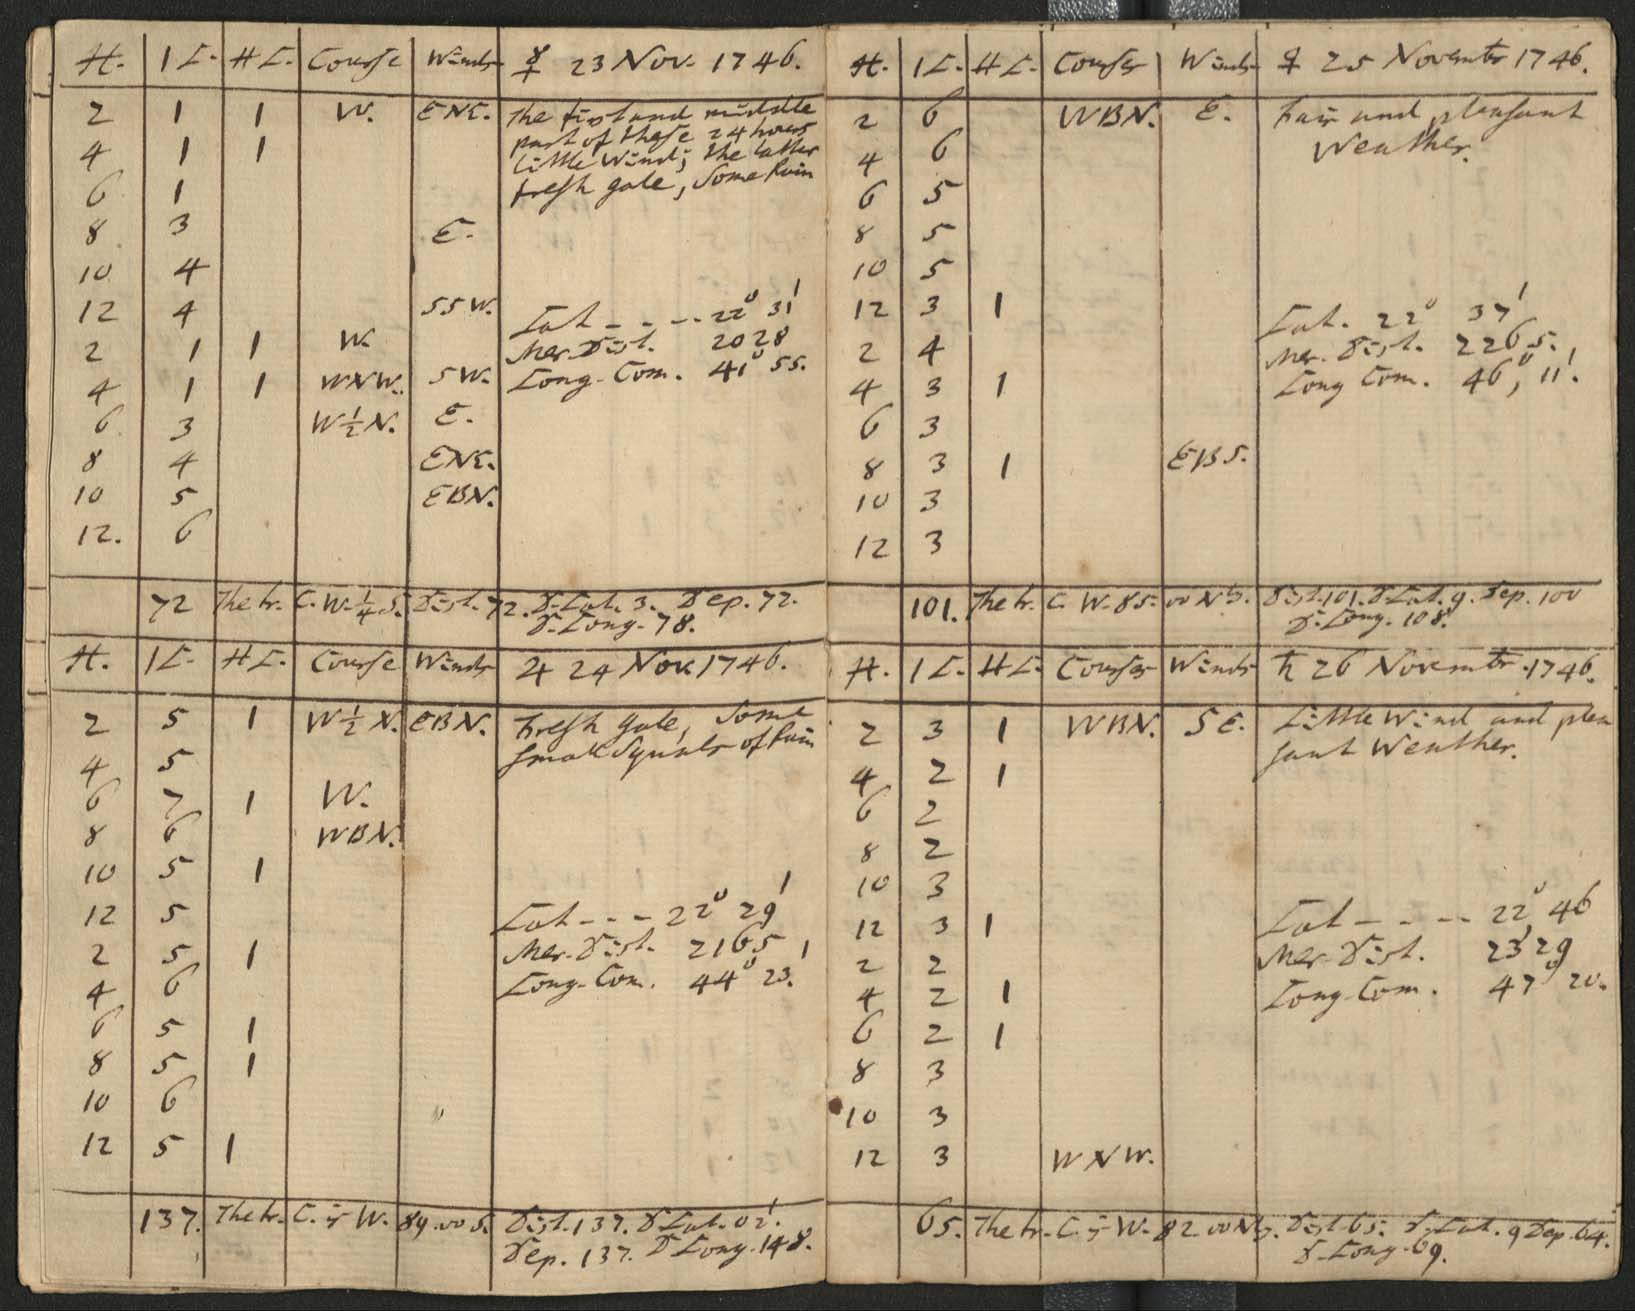 H. 1 L. H L. Course Winds ☿ 23 Nov. 1746.
2 1 1 W. ENE. The first and middle
part of these 24 hours
4 1 1 Little Wind; the latter
6 1 fresh gale, Some Rain
8 3 E.
10 4
12 4 SSW. Lat - - - - 22° 31'
2 1 1 W. Mer. Dist. 2028
4 1 1 WNW. SW. Long. Com. 41° 55.
6 3 W½N. E.
8 4 ENE.
10 5 EBN.
12. 6
72 The tr. C. W. ¼ S. Dist. 72. D. Lat. 3. Dep. 72.
D. Long. 78.
H. 1 L. H L. Course Winds ♃ 24 Nov. 1746.
2 5 1 W½N. EBN. Fresh gale, Some
4 5 small Squals of Rain
6 7 1 W.
8 6 WBN.
10 5 1
12 5 Lat - - - 22° 29'
2 5 1 Mer. Dist. 2165
4 6 Long. Com. 44° 23.'
6 5 1
8 5 1
10 6 "
12 5 1
137. The tr. C. is W. 89.00 S. Dist. 137. D. Lat. 02'.
Dep. 137. D Long. 148.
H. 1 L. H L. Courses Winds ♀ 25 Novembr 1746.
2 6 WBN. E. Fair and pleasant
4 6 Weather.
6 5
8 5
10 5
12 3 1 Lat. 22° 37'
2 4 Mer. Dist. 2265.
4 3 1 Long Com. 46°, 11'.
6 3
8 3 1 EBS.
10 3
12 3
101. The tr. C. W. 85. 00 N. Dist. 101. D. Lat. 9. Dep. 100
D. Long. 108.
H. 1 L. H L. Courses Winds ♄ 26 Novembr. 1746.
2 3 1 WBN. SE. Little Wind and plea
4 2 1 sant Weather.
6 2
8 2
10 3
12 3 1 Lat - - - - 22°, 46
2 2 Mer. Dist. 2329
4 2 1 Long. Com. 47° 20.
6 2 1
8 3
10 3
12 3 WNW.
65. The tr. C. is W. 82 00 N. Dist. 65. D. Lat. 9 Dep. 64.
D. Long. 69.